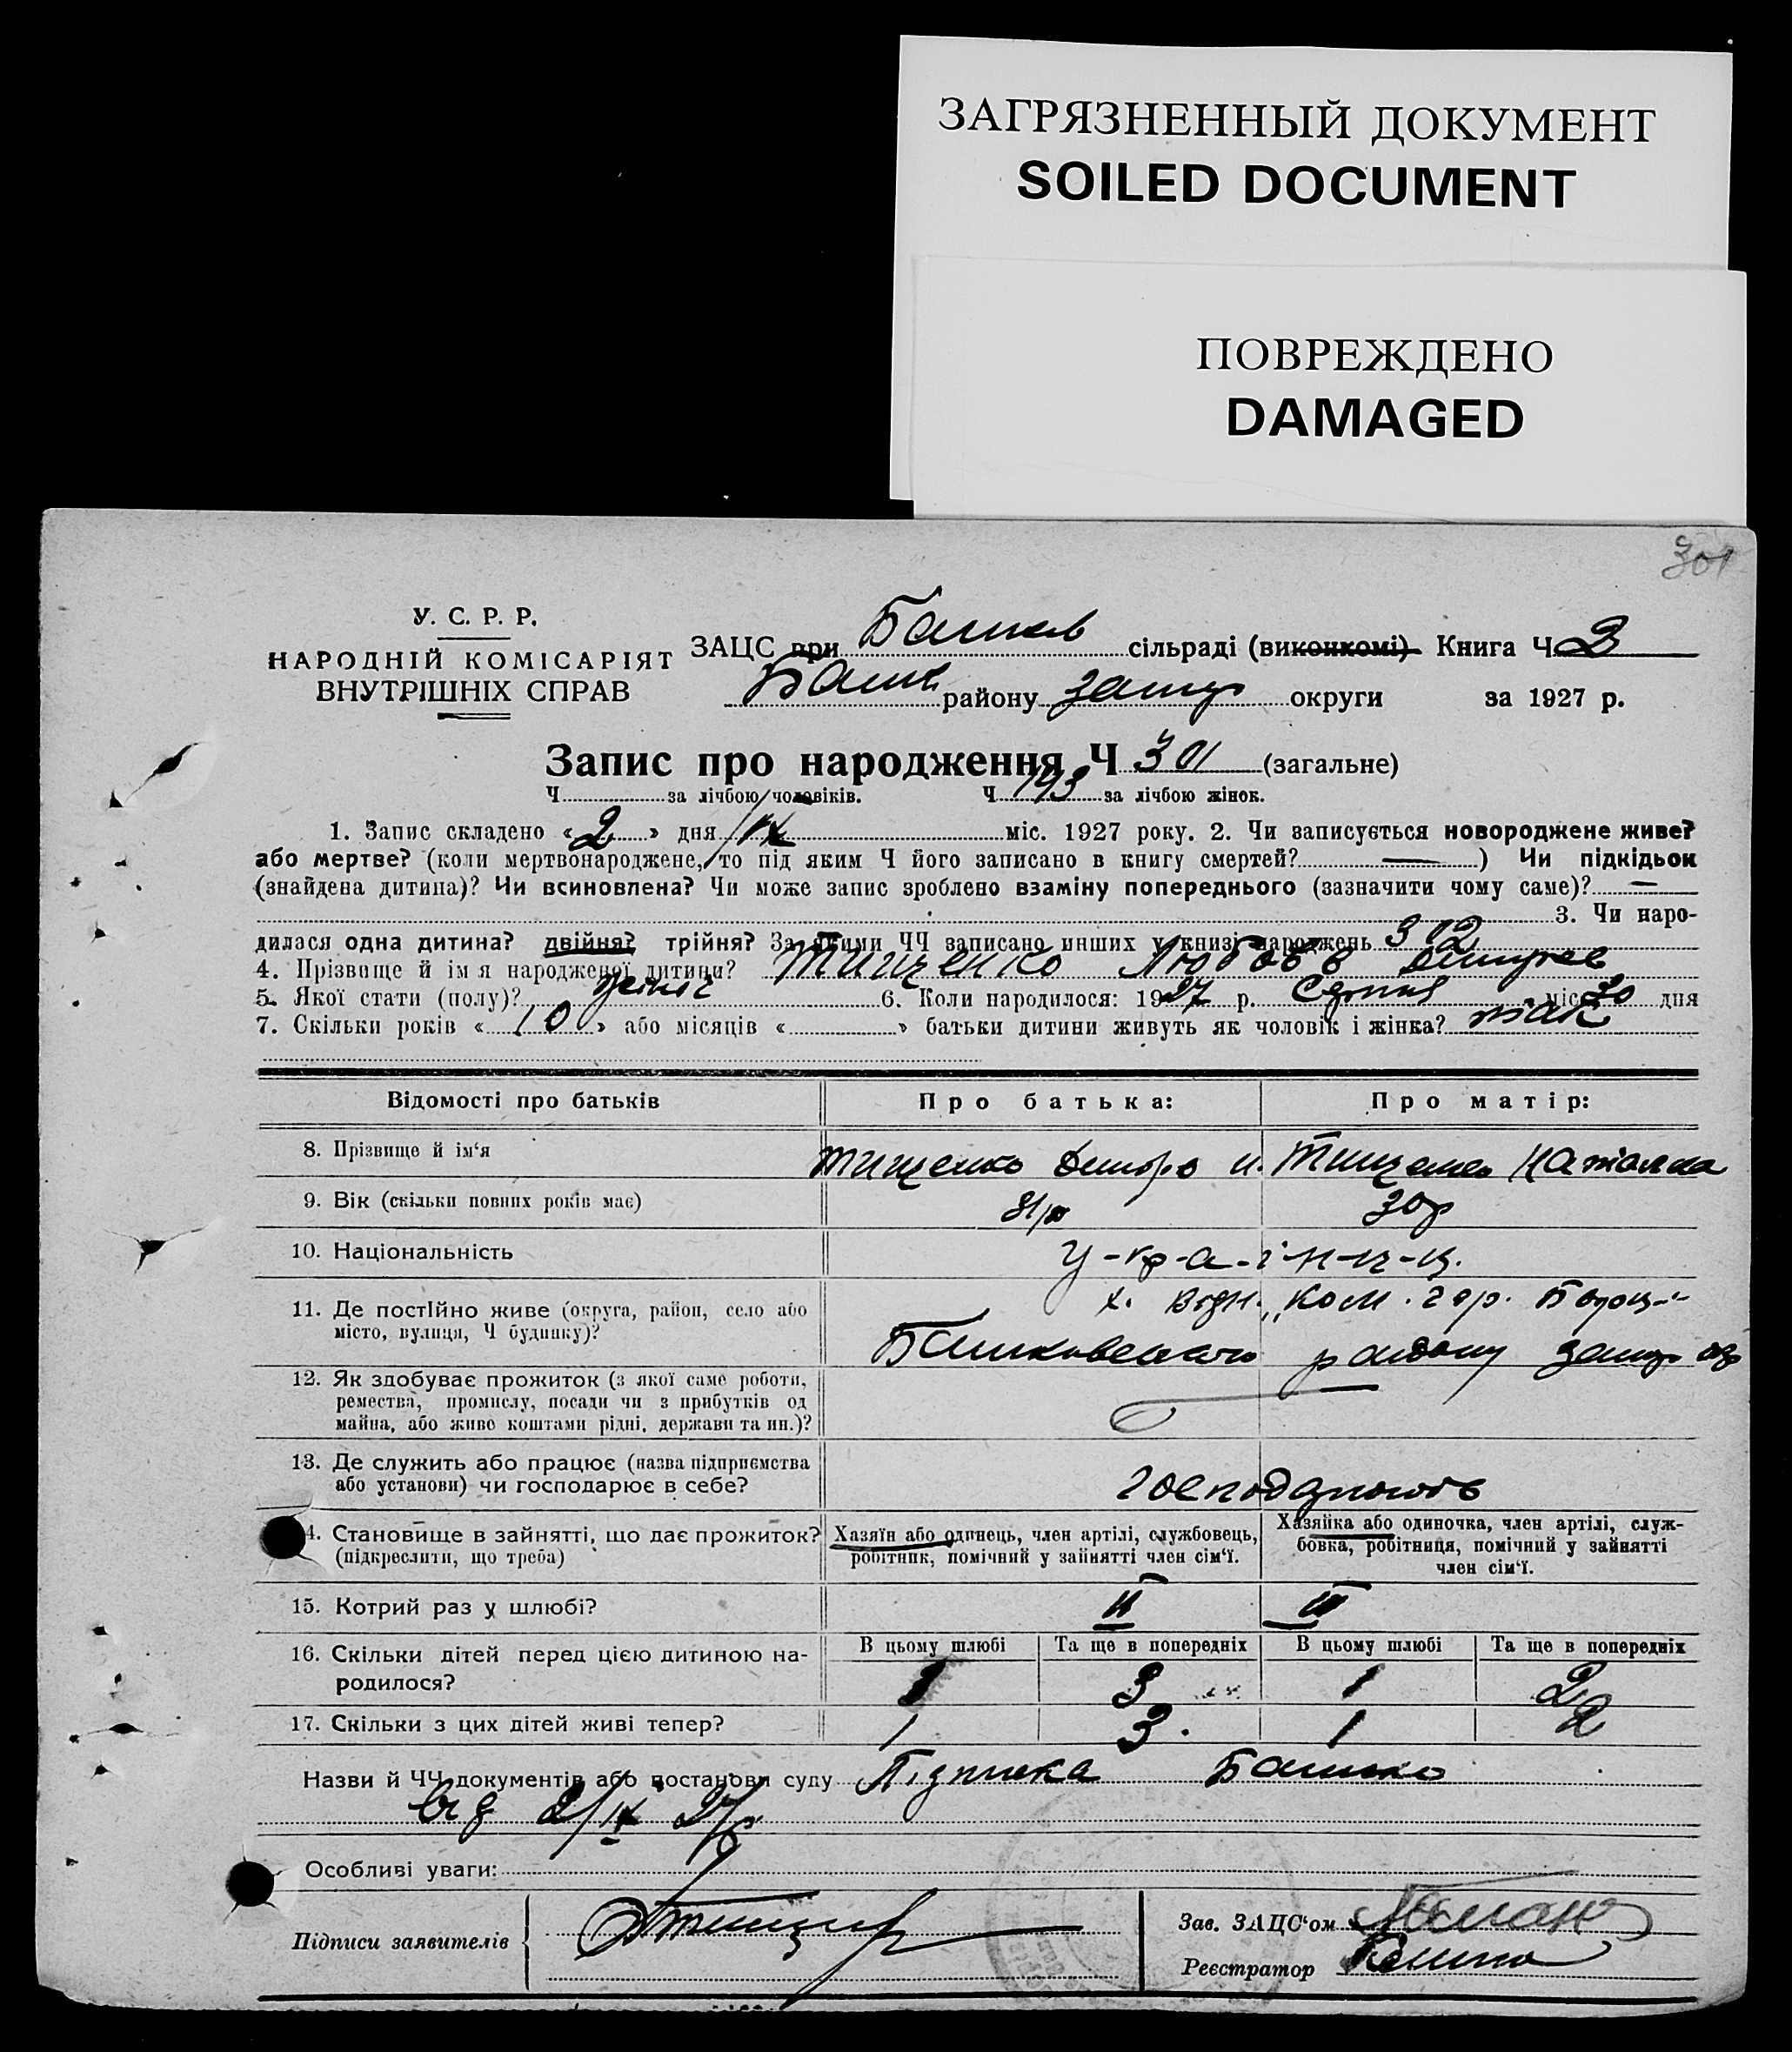 ЗАГРЯЗНЕННЫЙ ДОКУМЕНТ
SOILED DOCUMENT
ПОВРЕЖДЕНО
DAMAGED
301
У. С. Р. Р.
НАРОДНІЙ КОМІСАРІЯТ
ВНУТРІШНІХ СПРАВ
ЗАЦС при сільраді (виконкомі) Книга Ч. 2
району округи за 1927 р.
Запис про народження Ч 301 (загальне)
Ч за лічбою чоловіків. Ч 193 за лічбою жінок.
1. Запис складено « 2 » дня /IX міс. 1927 року. 2. Чи записується новороджене живе?
або мертве? (коли мертвонароджене, то під яким Ч його записано в книгу смертей? — ) Чи підкідьок
(знайдена дитина)? Чи всиновлена? Чи може запис зроблено взаміну попереднього (зазначити чому саме)? —
3. Чи наро-
дилася одна дитина? двійня? трійня? За якими ЧЧ записано инших у книзі народжень 302
4. Прізвище й ім'я народженої дитини? Тищенко Любовь
5. Якої стати (полу)? жіноч 6. Коли народилося: 1927 р. Серпня міс. 30 дня
7. Скільки років « 10 » або місяців « » батьки дитини живуть як чоловік і жінка? так
Відомості про батьків Про батька: Про матір:
8. Прізвище й ім'я Тищенко Дмитро И. Тищенко Наталка
9. Вік (скільки повних років має) 31р 30р
10. Національність у-кр-а-ї-н-ц-ц.
11. Де постійно живе (округа, район, село або х. Відн. „Ком. гор.
місто, вулиця, Ч будинку)? району
12. Як здобуває прожиток (з якої саме роботи,
ремества, промислу, посади чи з прибутків од —
майна, або живе коштами рідні, держави та ин.)?
13. Де служить або працює (назва підприємства
або установи) чи господарює в себе? господарюють
14. Становище в зайнятті, що дає прожиток? Хазяїн або одинець, член артілі, службовець, Хазяйка або одиночка, член артілі, служ-
(підкреслити, що треба) робітник, помічний у зайнятті член сім'ї. бовка, робітниця, помічний у зайнятті
член сім'ї.
15. Котрий раз у шлюбі? II II
16. Скільки дітей перед цією дитиною на- В цьому шлюбі Та ще в попередніх В цьому шлюбі Та ще в попередніх
родилося? 1 3 1 2
17. Скільки з цих дітей живі тепер? 1 3. 1 2
Назви й ЧЧ документів або постанови суду Підписка
від 2/IX 27р
Особливі уваги:
Підписи заявителів
Зав. ЗАЦС'ом
Реєстратор